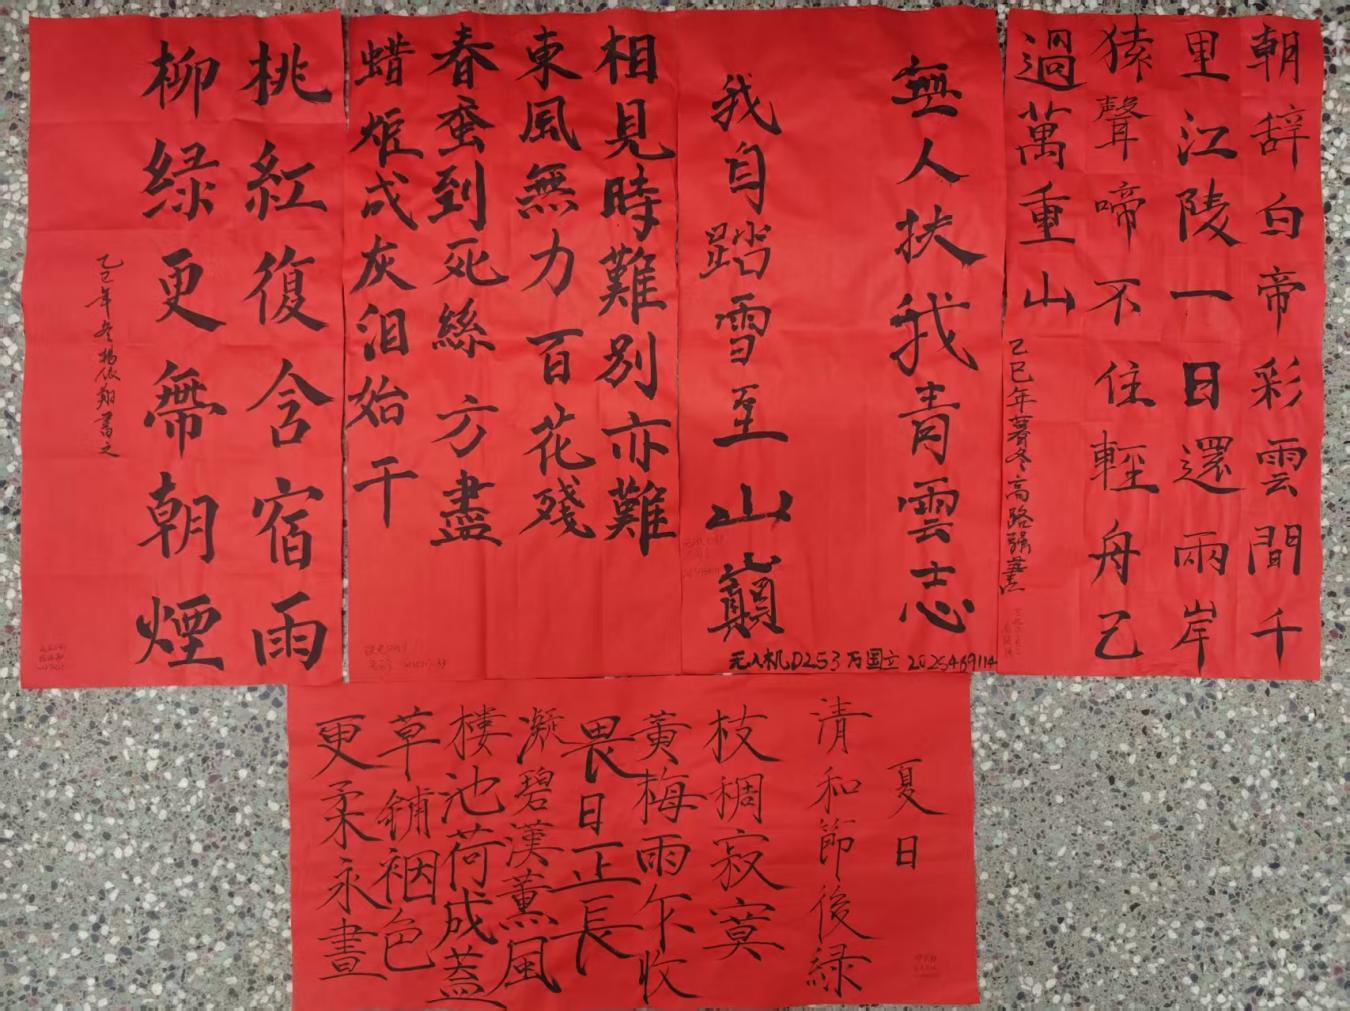 桃紅復含宿雨
柳绿更帶朝煙
乙巳年冬楊俊翔書之
相見時難別亦難
東風無力百花殘
春蚕到死絲方盡
蜡炬成灰泪始干
無人扶我青雲志
我自踏雪至山巔
无人机D253 万国立 2025469114
朝辞白帝彩雲間千
里江陵一日還兩岸
猿聲啼不住輕舟已
過萬重山
乙巳年暮冬高路强書
夏日
清和節後緑
枝稠寂寞
黄梅雨乍收
畏日正長
凝碧漢薰風
樓池荷成蓋
草鋪裀色
更柔永晝